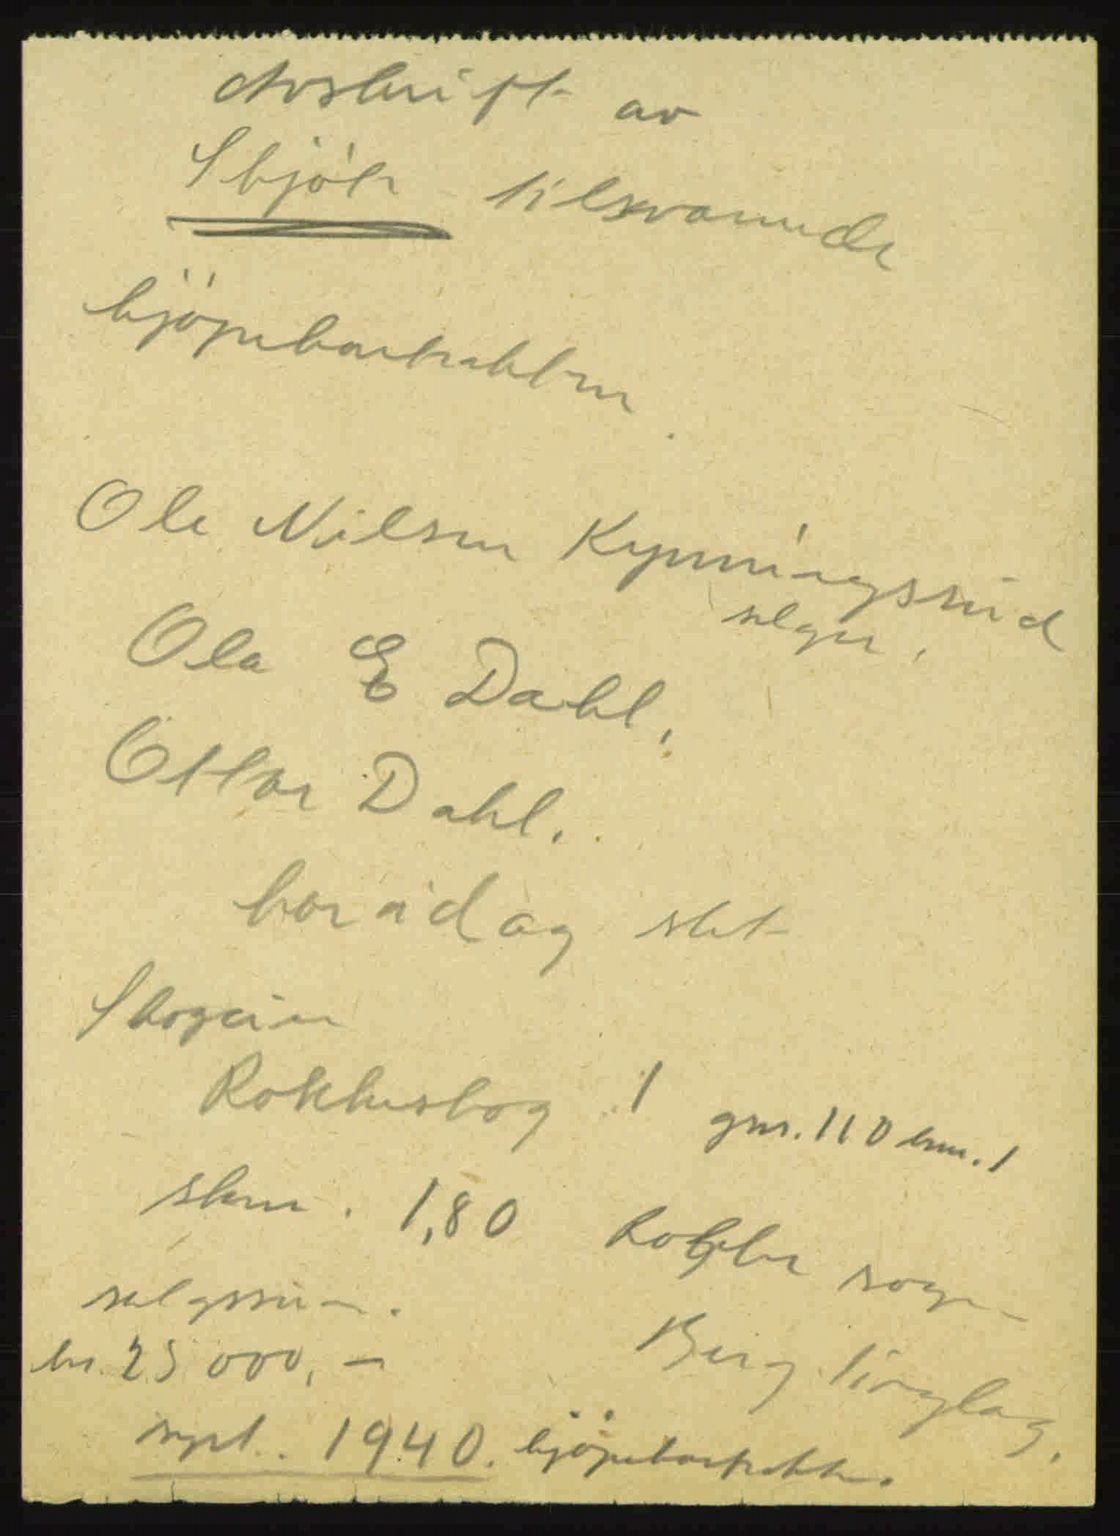 Avskrift av
Skjöte tilsvarende
kjöpekontrakten
Ole Nilsen Kynningsrud
selger.
Ola E Dahl.
Ottar Dahl.
har idag slut
Skogeien
Rokkeskog 1 gnr. 110 bnr. 1
sknr. 1,80 Rokke sogn
selgssum.
Berg tinglag.
kr. 25 000,-
sept. 1940. kjöpekontrakt.